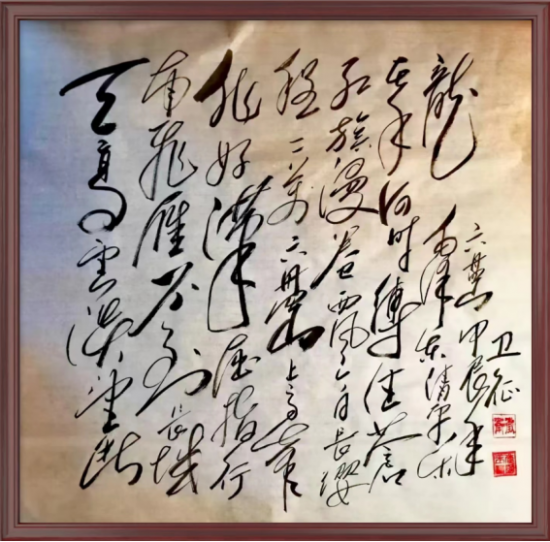 天高云淡望断
南飞雁不到长城
非好汉屈指行
程二万六盘山上高峰
红旗漫卷西风今日长缨
在手何时缚住苍
龍 毛泽东清平乐
六盘山 甲辰年
卫征